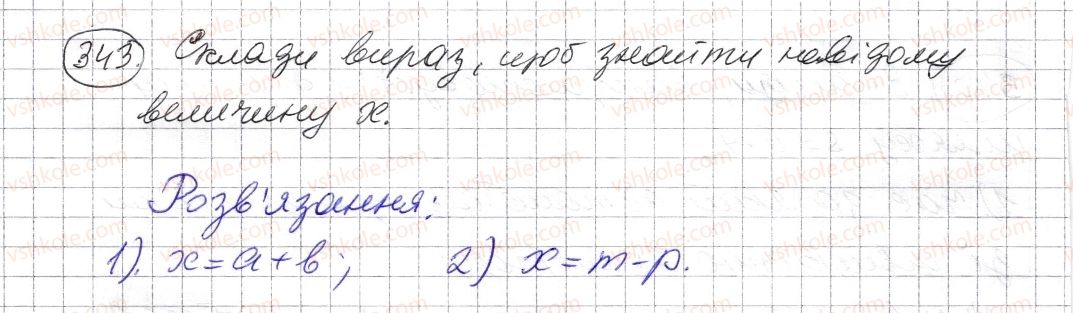 343 Склади вираз, щоб знайти невідому
величину х.
Розв'язання:
1). х = а + в; 2) х = m - p.